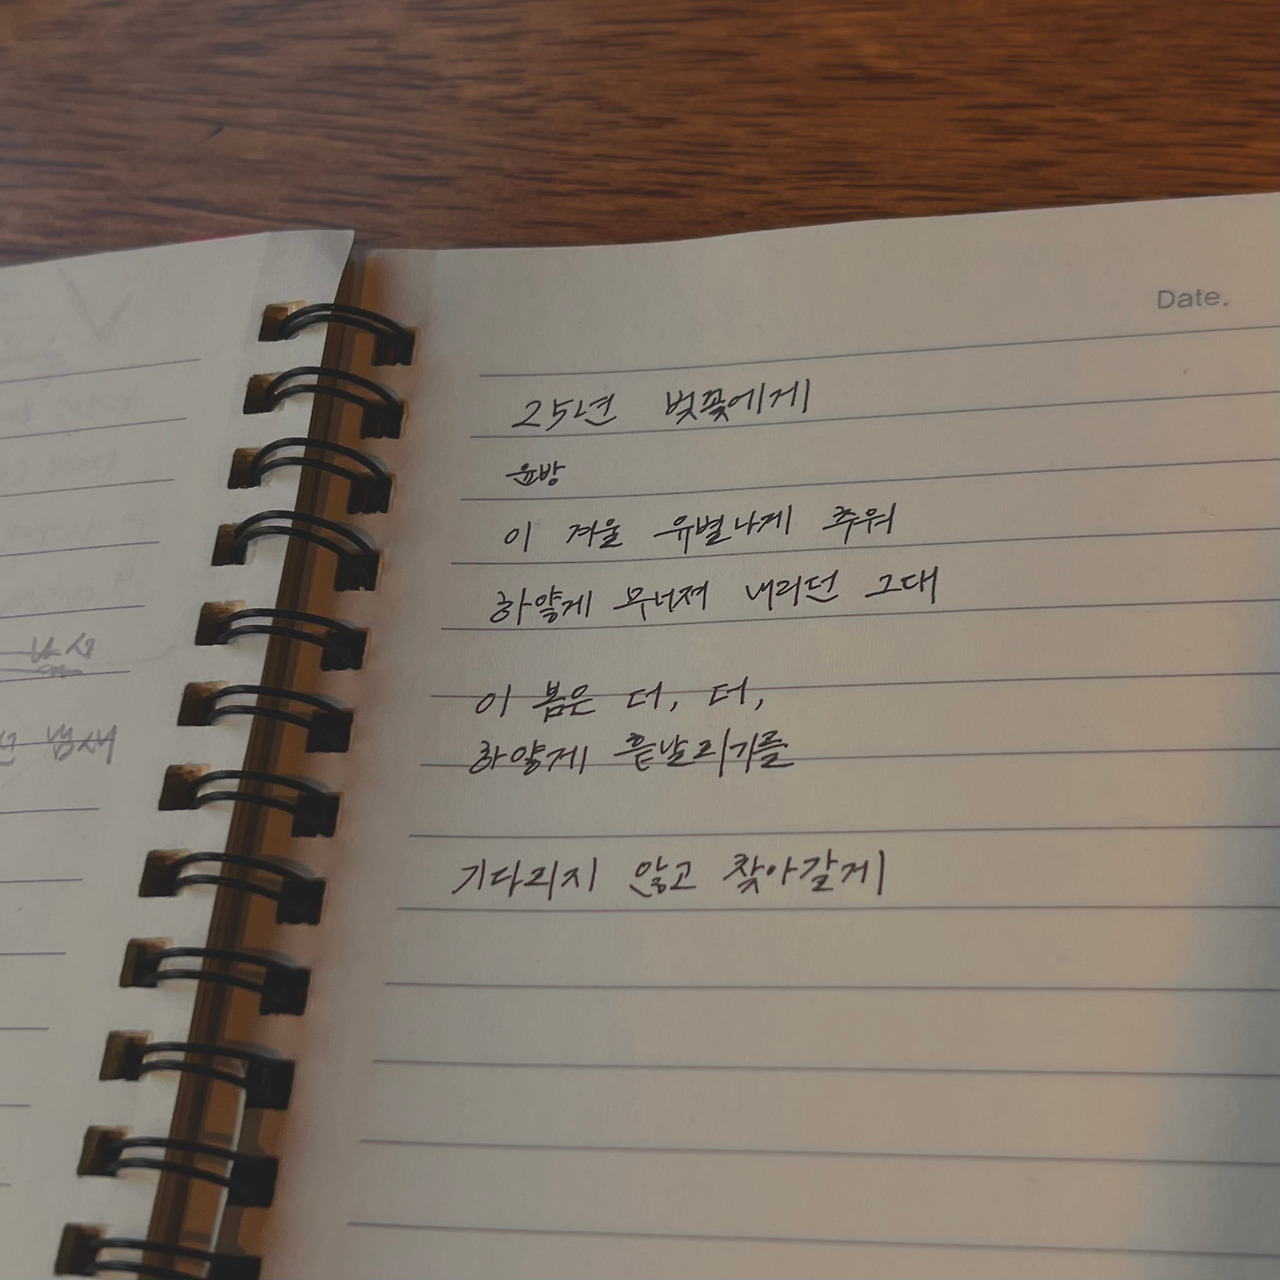 Date.
25년 벚꽃에게
윤방
이 겨울 유별나게 추워
하얗게 무너져 내리던 그대
이 봄은 더, 더,
하얗게 흩날리기를
기다리지 않고 찾아갈게
냄새